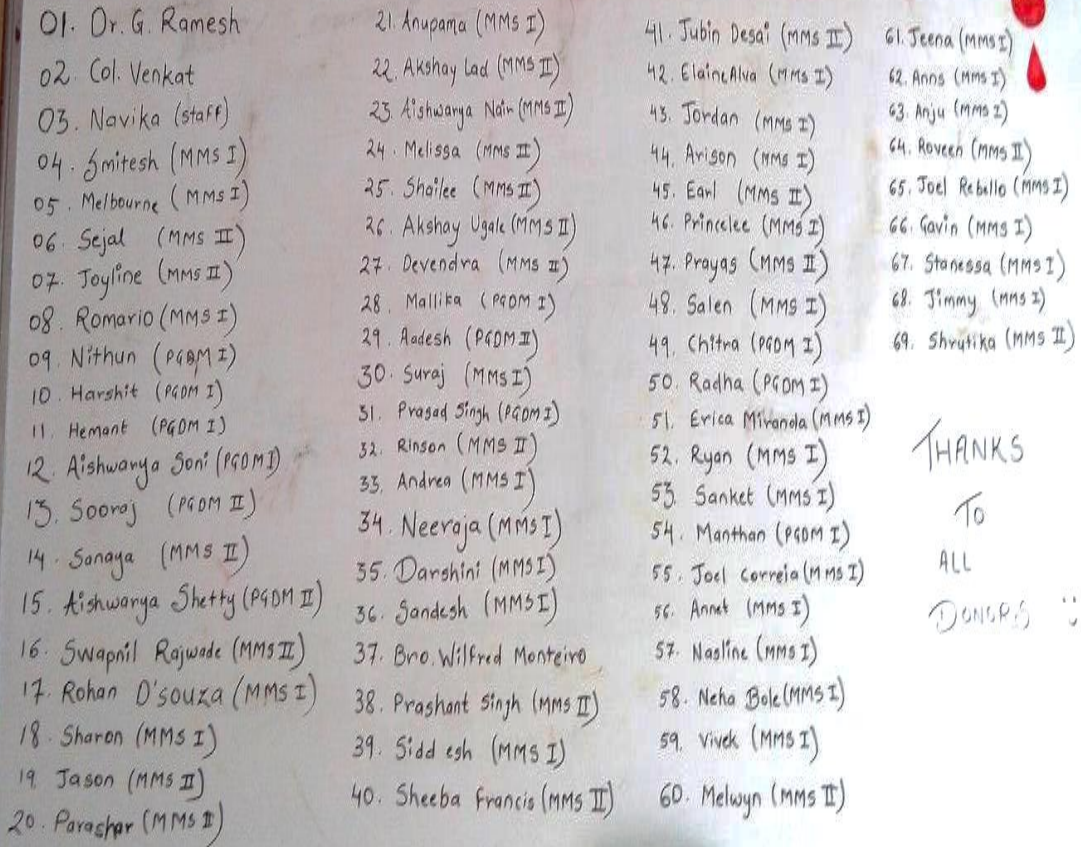 01. Dr. G. Ramesh
02. Col. Venkat
03. Navika (staff)
04. Smitesh (MMS I)
05. Melbourne (MMS I)
06. Sejal (MMS II)
07. Joyline (MMS II)
08. Romario (MMS I)
09. Nithun (PGDM I)
10. Harshit (PGDM I)
11. Hemant (PGDM I)
12. Aishwarya Soni (PGDM I)
13. Sooraj (PGDM II)
14. Sanaya (MMS II)
15. Aishwarya Shetty (PGDM II)
16. Swapnil Rajwade (MMS II)
17. Rohan D'souza (MMS I)
18. Sharon (MMS I)
19. Jason (MMS II)
20. Parashar (MMS II)
21. Anupama (MMS I)
22. Akshay Lad (MMS II)
23. Aishwarya Nair (MMS II)
24. Melissa (MMS II)
25. Shailee (MMS II)
26. Akshay Ugale (MMS II)
27. Devendra (MMS II)
28. Mallika (PGDM I)
29. Aadesh (PGDM II)
30. Suraj (MMS I)
31. Prasad Singh (PGDM I)
32. Rinson (MMS II)
33. Andrea (MMS I)
34. Neeraja (MMS I)
35. Darshini (MMS I)
36. Sandesh (MMS I)
37. Bro. Wilfred Monteiro
38. Prashant Singh (MMS II)
39. Siddesh (MMS I)
40. Sheeba Francis (MMS II)
41. Jubin Desai (MMS II)
42. Elaine Alva (MMS I)
43. Jordan (MMS I)
44. Arison (MMS I)
45. Earl (MMS II)
46. Princelee (MMS I)
47. Prayas (MMS II)
48. Salen (MMS I)
49. Chitra (PGDM I)
50. Radha (PGDM I)
51. Erica Miranda (MMS I)
52. Ryan (MMS I)
53. Sanket (MMS I)
54. Manthan (PGDM I)
55. Joel Correia (MMS I)
56. Annet (MMS I)
57. Nasline (MMS I)
58. Neha Bole (MMS I)
59. Vivek (MMS I)
60. Melwyn (MMS II)
61. Jeena (MMS I)
62. Anns (MMS I)
63. Anju (MMS I)
64. Roveen (MMS II)
65. Joel Rebello (MMS I)
66. Gavin (MMS I)
67. Stanessa (MMS I)
68. Jimmy (MMS I)
69. Shrutika (MMS II)
THANKS
TO
ALL
DONORS :)